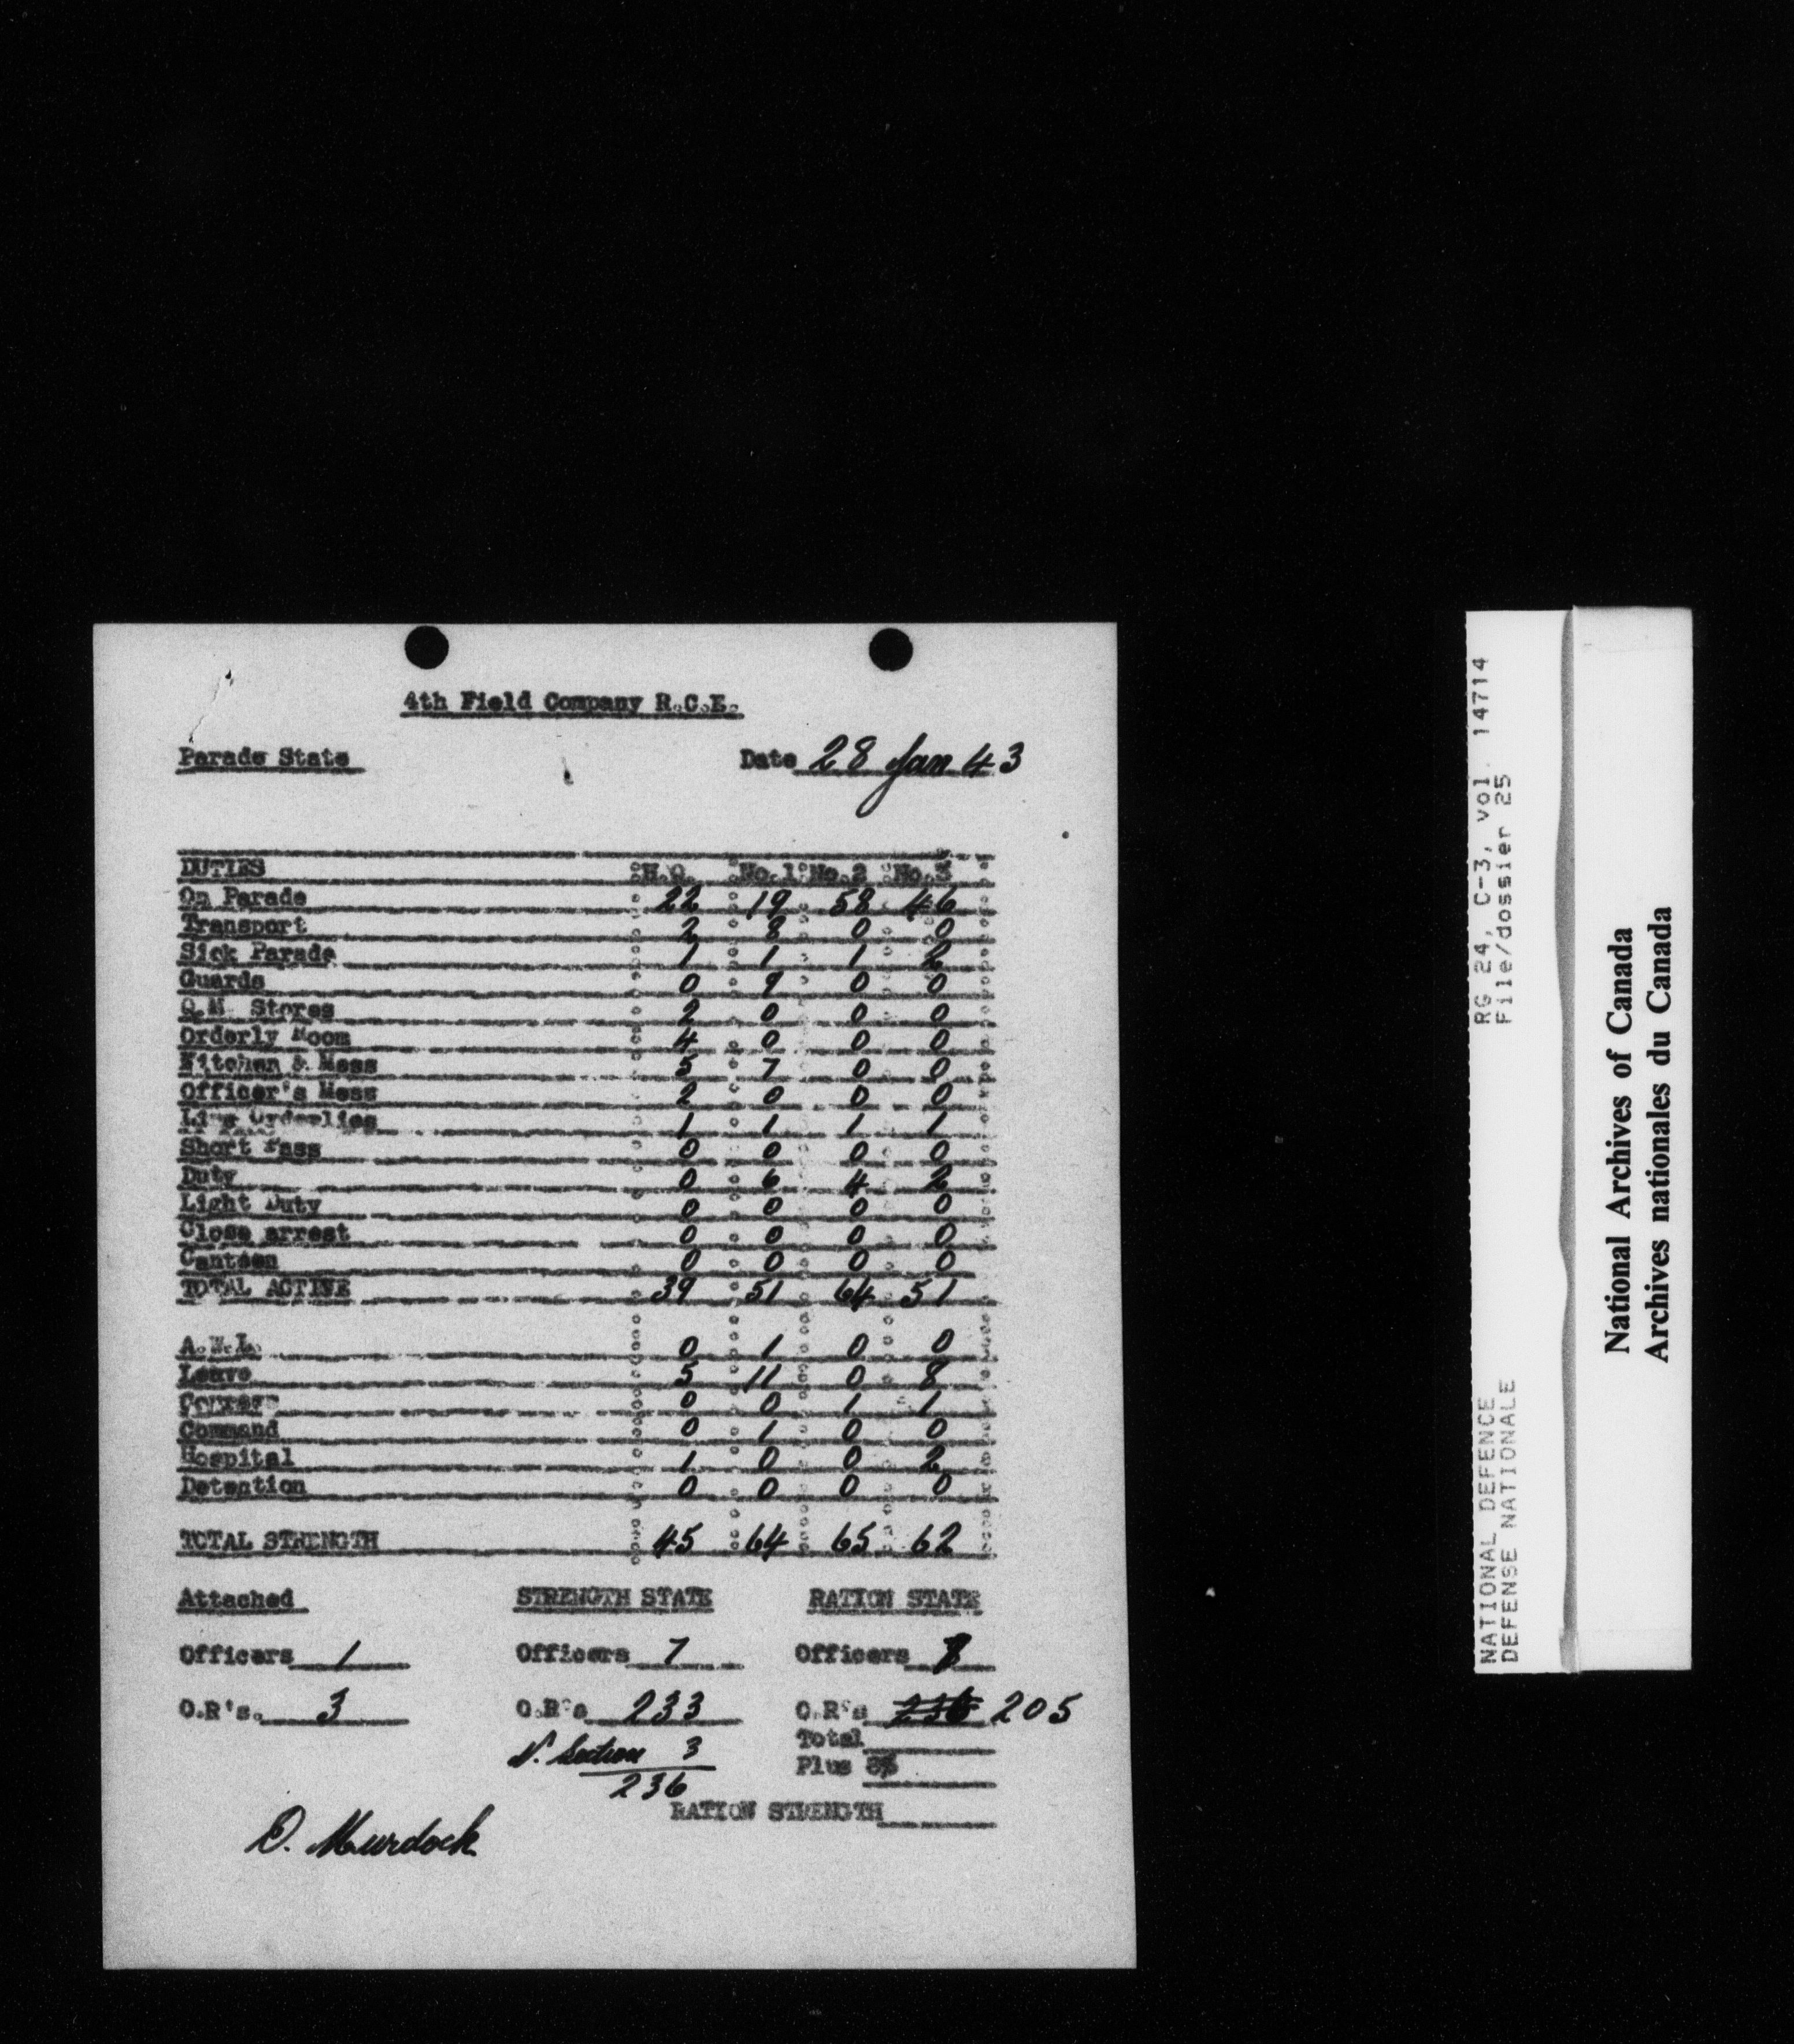 4th Field Company R.C.E.
Parade State Date 28 Jan 43
DUTIES H.Q. No.1 No.2 No.3
On Parade 22 19 58 46
Transport 2 8 0 0
Sick Parade 1 1 1 2
Guards 0 9 0 0
Q.M. Stores 2 0 0 0
Orderly Room 4 0 0 0
Kitchen & Mess 5 7 0 0
Officer's Mess 2 0 0 0
Line Orderlies 1 1 1 1
Short Pass 0 0 0 0
Duty 0 6 4 2
Light Duty 0 0 0 0
Close arrest 0 0 0 0
Canteen 0 0 0 0
TOTAL ACTIVE 39 51 64 51
A.W.L. 0 1 0 0
Leave 5 11 0 8
Courses 0 0 1 1
Command 0 1 0 0
Hospital 1 0 0 2
Detention 0 0 0 0
TOTAL STRENGTH 45 64 65 62
Attached STRENGTH STATE RATION STATE
Officers 1 Officers 7 Officers 8
O.R's. 3 O.R's 233 O.R's 236 205
Total
Section 3
Plus
236
RATION STRENGTH
D. Murdock
RG 24, C-3, vol. 14714
File/dossier 25
NATIONAL DEFENCE
DEFENSE NATIONALE
National Archives of Canada
Archives nationales du Canada